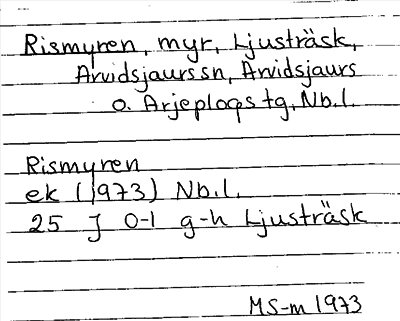 Rismyren, myr, Ljusträsk,
Arvidsjaurs sn, Arvidsjaurs
o. Arjeplogs tg, Nb.l.
Rismyren
ek (1973) Nb.l.
25 J 0-1 g-h Ljusträsk
MS-m 1973